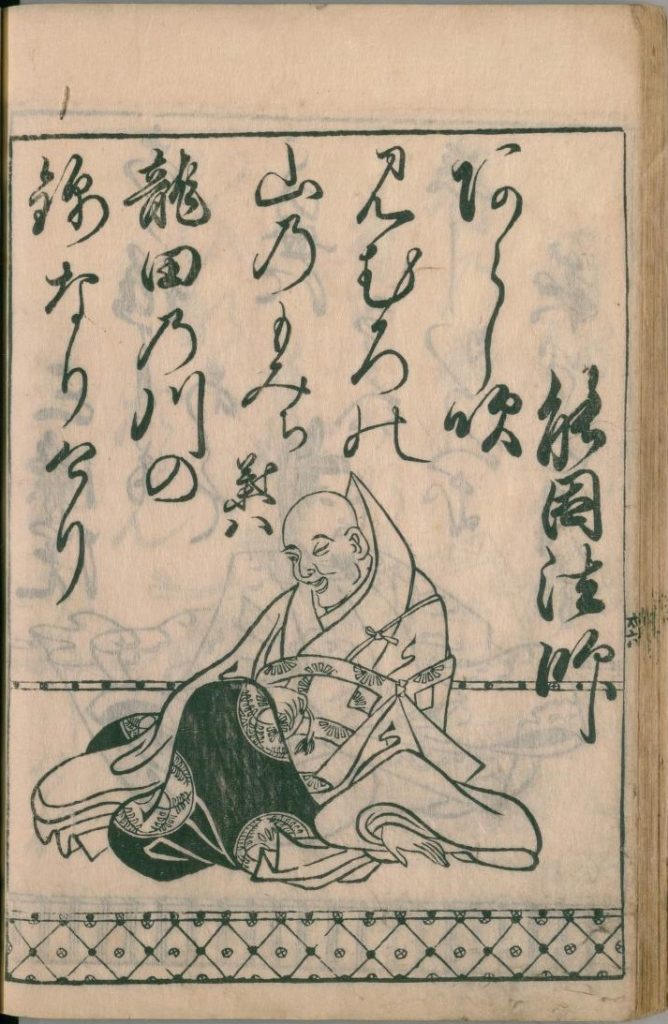 能因法師
あらし吹
見むろの
山乃もみち
葉ハ
龍田乃川の
錦なりけり